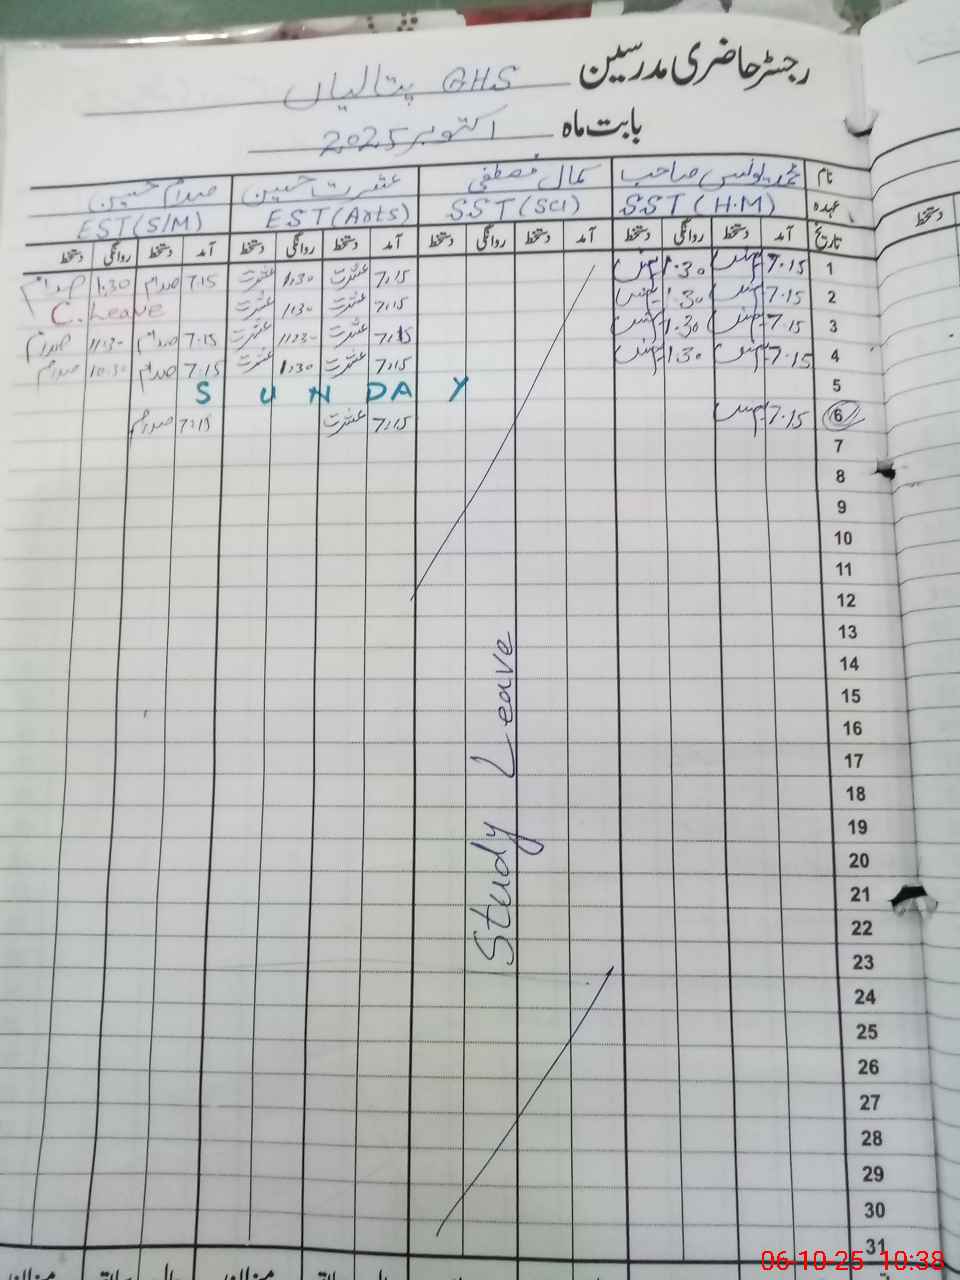 رجسٹر حاضری مدرسین GHS پتالیاں
بابت ماہ اکتوبر 2025
نام محمد یونس صاحب کمال مصطفٰی عشرت حسین صدام حسین
عہدہ SST (H.M) SST (Sci) EST (Arts) EST (S/M)
تاریخ آمد دستخط روانگی دستخط آمد دستخط روانگی دستخط آمد دستخط روانگی دستخط آمد دستخط روانگی دستخط
1 7.15 یونس 1.30 یونس 7.15 عشرت 1.30 عشرت 7.15 صدام 1.30 صدام
2 7.15 یونس 1.30 یونس 7.15 عشرت 1.30 عشرت C. Leave
3 7.15 یونس 1.30 یونس 7.15 عشرت 11:30 عشرت 7.15 صدام 11:30 صدام
4 7.15 یونس 1.30 یونس 7.15 عشرت 1.30 عشرت 7.15 صدام 10.30 صدام
5 SUNDAY
6 7.15 یونس 7.15 عشرت 7.15 صدام
7
8
9
10
11
12
13
14
15
16
17
18
19
20
21
22
23
24
25
26
27
28
29
30
31
Study Leave
06-10-25 10:38